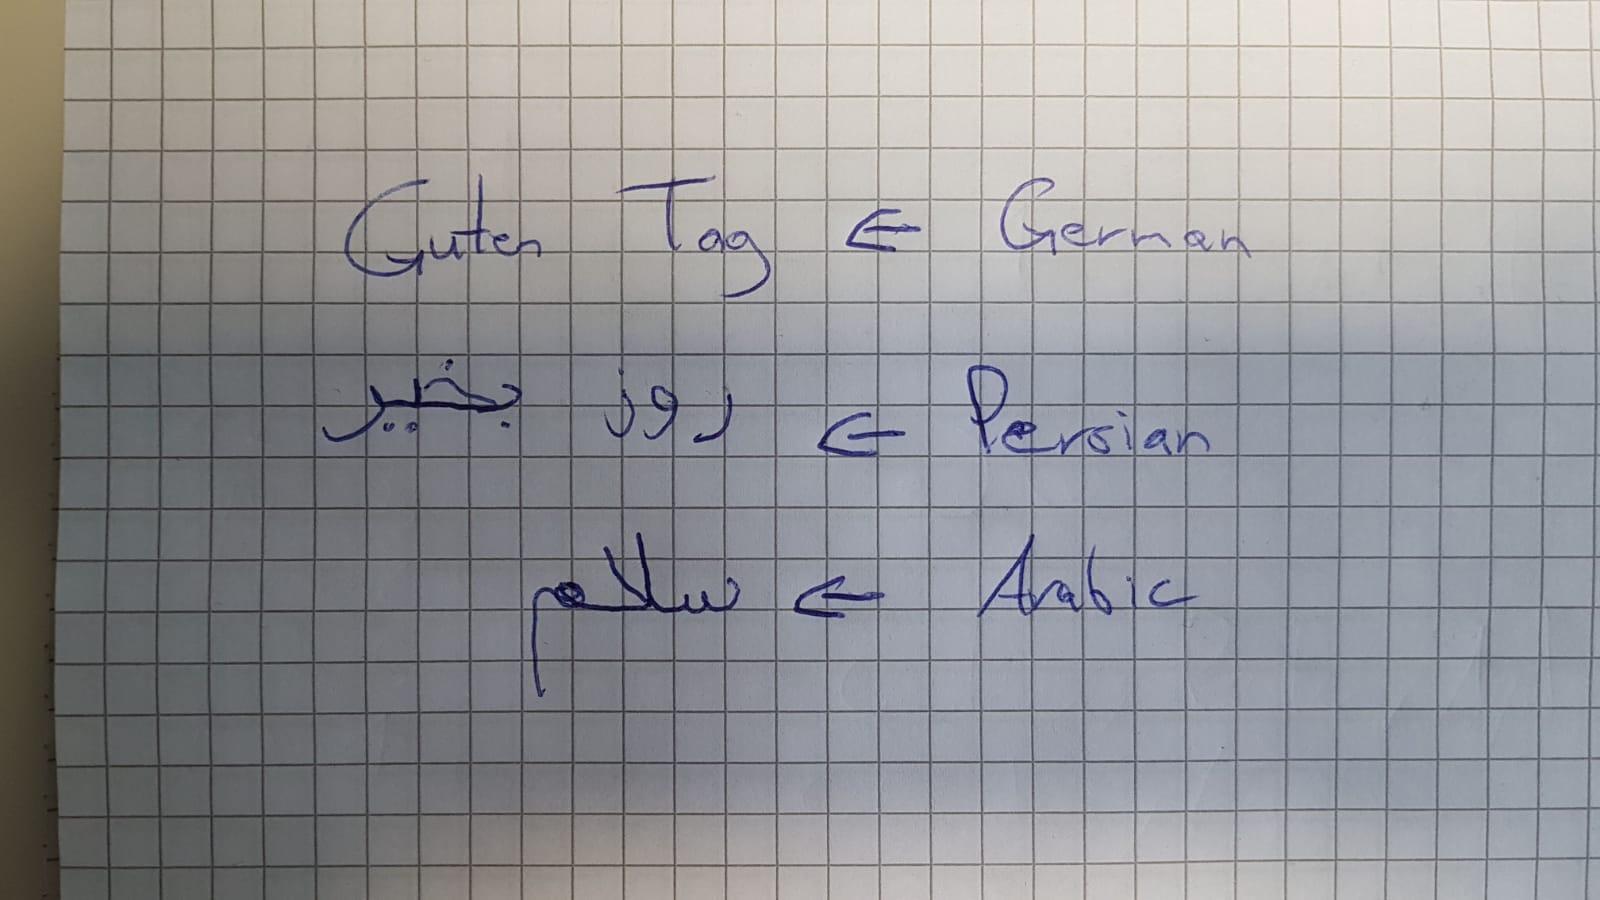 Guten Tag ← German
روز بخیر ← Persian
سلام ← Arabic